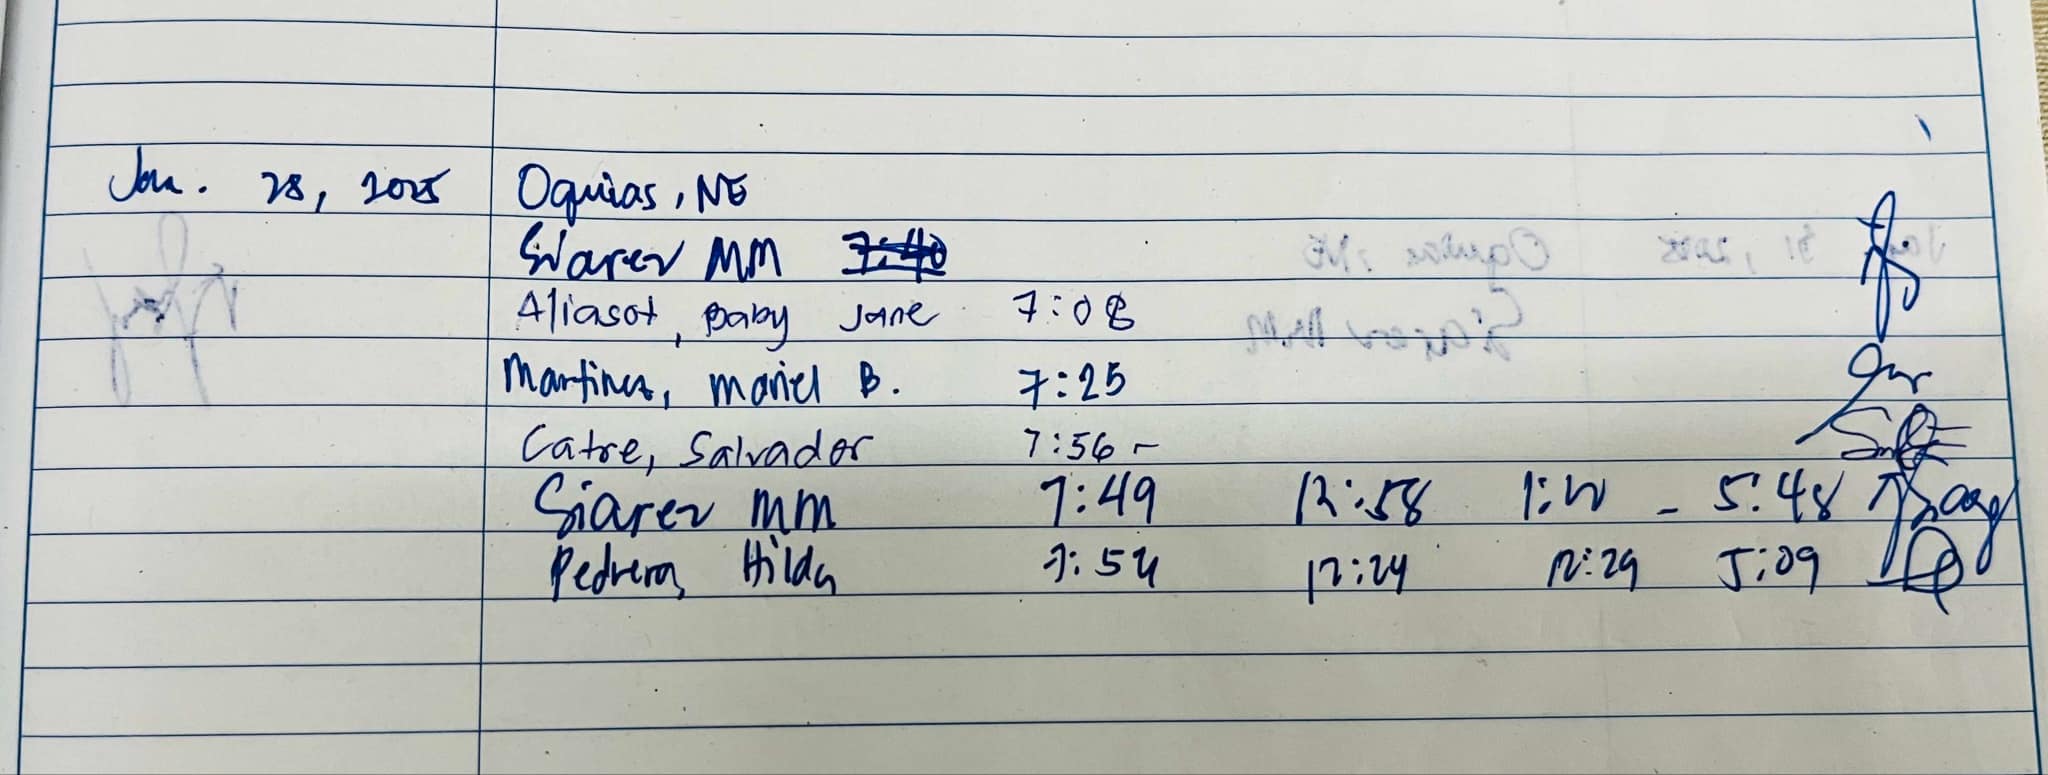 Jan. 28, 2025 Oquias, NE
Siarez MM 7:40
Aliasot, Baby Jane 7:08
Martinez, Mariel B. 7:25
Catre, Salvador 7:56 -
Siarez MM 7:49 12:58 1:20 - 5:48
Pedrera, Hilda 7:54 12:24 12:29 5:09